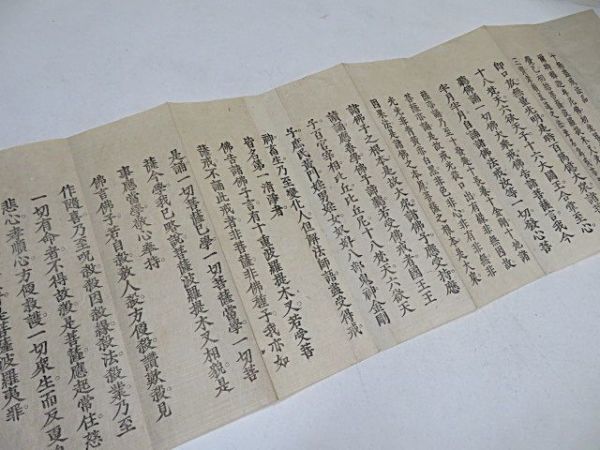 佛即口放無量光明是時百萬億大衆諸菩薩
十八梵天六欲天子十六大國王合掌至心
聽佛誦一切佛大乘戒佛告諸菩薩言我今
半月半月自誦諸佛法戒汝等一切發心菩
薩亦誦乃至十發趣十長養十金剛十地諸
菩薩亦誦是故戒光從口出有緣非無因故
光光非青黃赤白黑非色非心非有非無非
因果法是諸佛之本原菩薩之根本是大衆
諸佛子之根本是故大衆諸佛子應受持應
讀誦善學佛子諦聽若受佛戒者國王王
子百官宰相比丘比丘尼十八梵天六欲天
子庶民黃門婬男婬女奴婢八部鬼神金剛
神畜生乃至變化人但解法師語盡受得戒
皆名第一清淨者
佛告諸佛子言有十重波羅提木叉若受菩
薩戒不誦此戒者非菩薩非佛種子我亦如
是誦一切菩薩已學一切菩薩當學一切菩
薩今學我已略說菩薩波羅提木叉相貌是
事應當學敬心奉持
佛言佛子若自殺教人殺方便殺讚歎殺見
作隨喜乃至呪殺殺因殺緣殺法殺業乃至
一切有命者不得故殺是菩薩應起常住慈
悲心孝順心方便救護一切衆生而反更自
是菩薩波羅夷罪